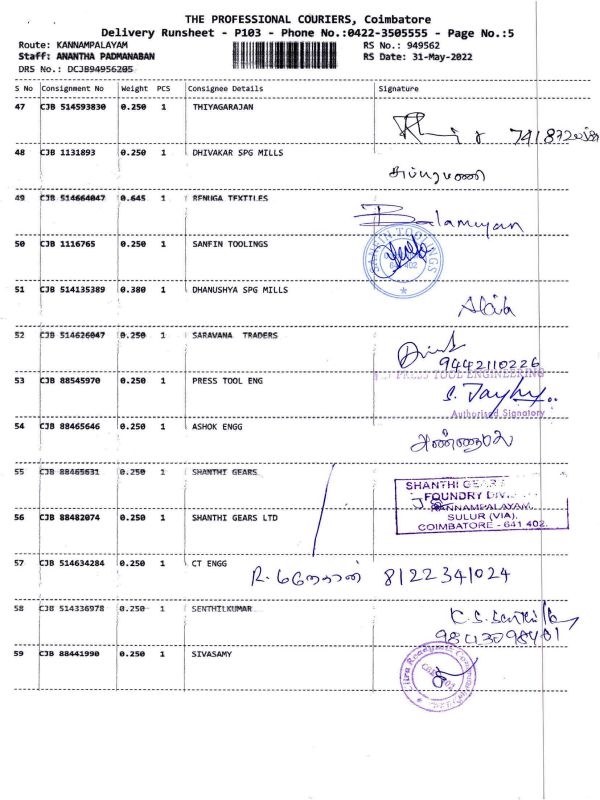 THE PROFESSIONAL COURIERS, Coimbatore
Delivery Runsheet - P103 - Phone No.:0422-3505555 - Page No.:5
Route: KANNAMPALAYAM RS No.: 949562
Staff: ANANTHA PADMANABAN RS Date: 31-May-2022
DRS No.: DCJB94956205
S No Consignment No Weight PCS Consignee Details Signature
47 CJB 514593830 0.250 1 THIYAGARAJAN
48 CJB 1131893 0.250 1 DHIVAKAR SPG MILLS
சுப்பரமணி
49 CJB 514664047 0.645 1 RENUGA TEXTILES
Balamuyan
50 CJB 1116765 0.250 1 SANFIN TOOLINGS
SANFIN TOOLINGS
51 CJB 514135389 0.380 1 DHANUSHYA SPG MILLS
52 CJB 514626047 0.250 1 SARAVANA TRADERS
9442110226
53 CJB 88545970 0.250 1 PRESS TOOL ENG
PRESS TOOL ENGINEERING
Authorised Signatory
54 CJB 88465646 0.250 1 ASHOK ENGG
55 CJB 88465631 0.250 1 SHANTHI GEARS
SHANTHI GEARS
FOUNDRY DIV
KANNAMPALAYAM,
SULUR (VIA),
COIMBATORE - 641 402.
56 CJB 88482074 0.250 1 SHANTHI GEARS LTD
57 CJB 514634284 0.250 1 CT ENGG
R. 8122341024
58 CJB 514336978 0.250 1 SENTHILKUMAR
59 CJB 88441990 0.250 1 SIVASAMY